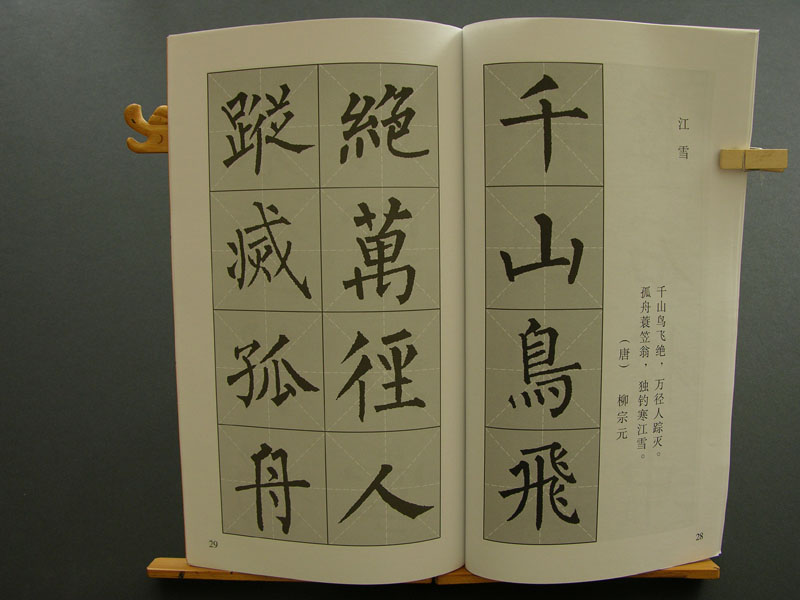 江雪
千山鸟飞绝，万径人踪灭。
孤舟蓑笠翁，独钓寒江雪。
（唐） 柳宗元
千山鳥飛
28
絕萬徑人
蹤滅孤舟
29